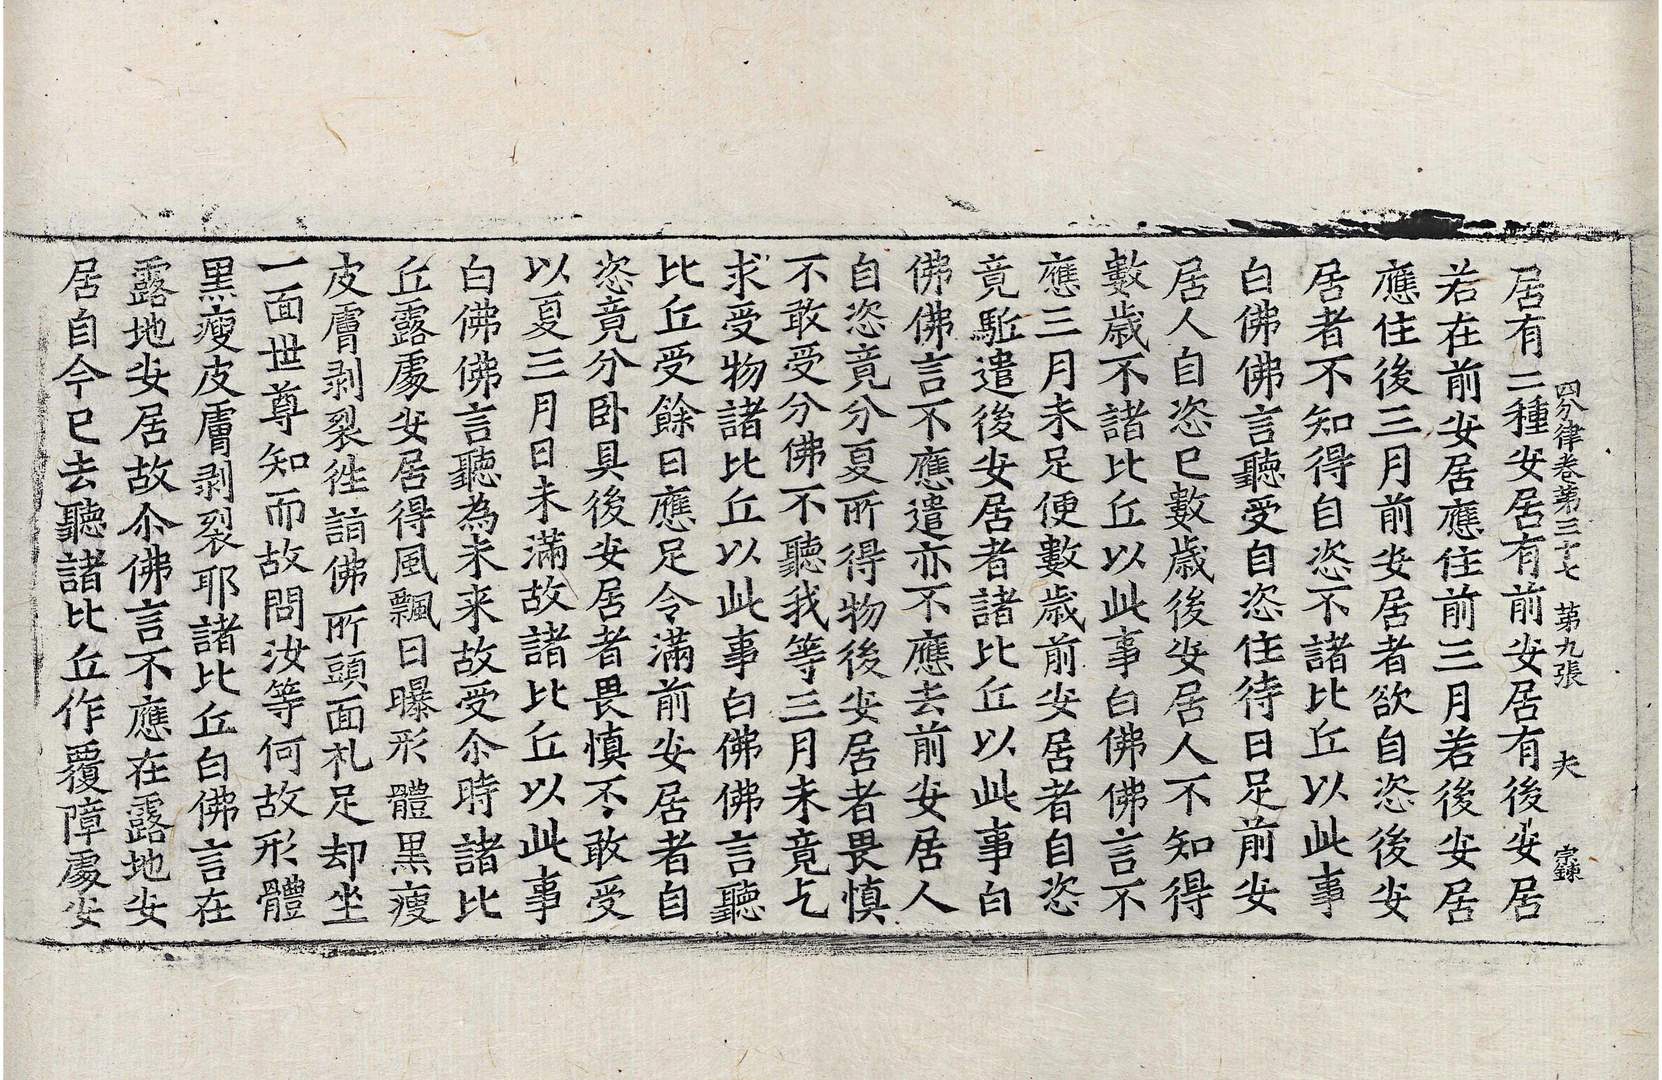 四分律卷第三十七　第九張　夫　宗鍊
居有二種安居有前安居有後安居
若在前安居應住前三月若後安居
應住後三月前安居者欲自恣後安
居者不知得自恣不諸比丘以此事
白佛佛言聽受自恣住待日足前安
居人自恣已數歲後安居人不知得
數歲不諸比丘以此事白佛佛言不
應三月未足便數歲前安居者自恣
竟駈遣後安居者諸比丘以此事白
佛佛言不應遣亦不應去前安居人
自恣竟分夏所得物後安居者畏慎
不敢受分佛不聽我等三月未竟乞
求受物諸比丘以此事白佛佛言聽
比丘受餘日應足令滿前安居者自
恣竟分卧具後安居者畏慎不敢受
以夏三月日未滿故諸比丘以此事
白佛佛言聽為未来故受尒時諸比
丘露處安居得風飄日曝形體黑瘦
皮膚剥裂徃詣佛所頭面礼足却坐
一面世尊知而故問汝等何故形體
黑瘦皮膚剥裂耶諸比丘白佛言在
露地安居故尒佛言不應在露地安
居自今已去聽諸比丘作覆障處安